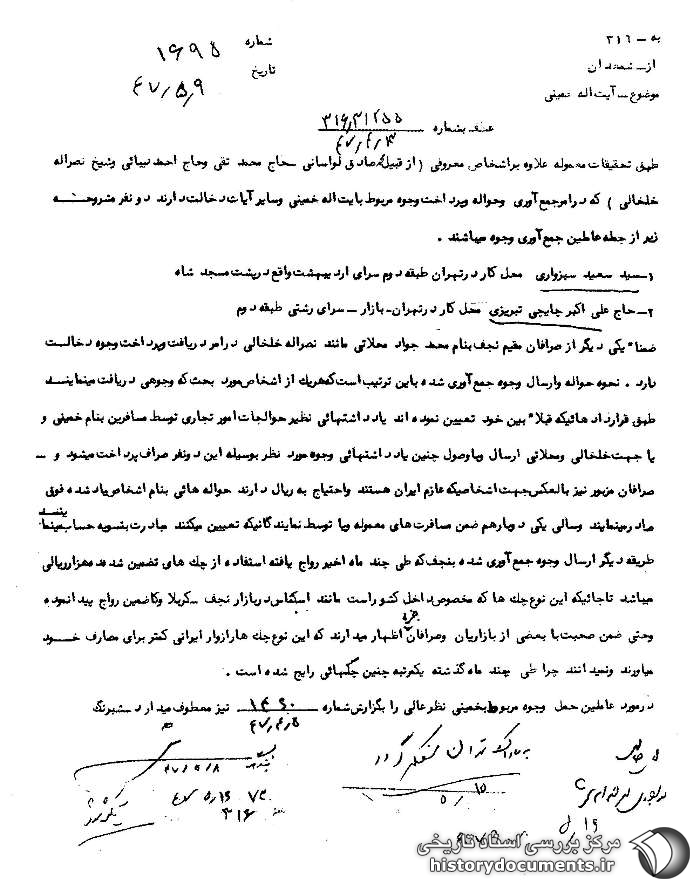 به – ۳۱۶
شماره ۱۶۹۵
از – شمعدان
تاریخ ۴۷/۵/۹
موضوع – آیت اله خمینی
عطف بشماره ۳۱۶/۳۱۲۵۵
۴۷/۴/۳
طبق تحقیقات معموله علاوه براشخاص معروفی ( از قبیل صادق لواسانی – حاج محمد تقی وحاج احمد بیاتی وشیخ نصراله
خلخالی ) که در امر جمع آوری وحواله وپرداخت وجوه مربوط بایت اله خمینی وسایر آیات دخالت دارند دو نفر مشروحه
زیر از جمله عاملین جمع آوری وجوه میباشند .
۱– سید سعید سبزواری محل کار در تهران طبقه دوم سرای اردیبهشت واقع در پشت مسجد شاه
۲– حاج علی اکبر چایچی تبریزی محل کار در تهران – بازار – سرای رشتی طبقه دوم
ضمنا" یکی دیگر از صرافان مقیم نجف بنام محمد جواد محلاتی مانند نصراله خلخالی در امر دریافت وپرداخت وجوه دخالت
دارد . نحوه حواله وارسال وجوه جمع آوری شده باین ترتیب است که هریک از اشخاص مورد بحث که وجوهی دریافت مینمایند
طبق قرارداد هائیکه قبلا" بین خود تعیین نموده اند یادداشتهائی نظیر حوالجات امور تجاری توسط مسافرین بنام خمینی و
یا جهت خلخالی ومحلاتی ارسال وباوصول چنین یادداشتهائی وجوه مورد نظر بوسیله این دونفر صراف پرداخت میشود و –
صرافان مزبور نیز بالعکس جهت اشخاصیکه عازم ایران هستند واحتیاج به ریال دارند حواله هائی بنام اشخاص یاد شده فوق
صادر مینمایند وسالی یکی دوبار هم ضمن مسافرت های معموله ویا توسط نمایندگانیکه تعیین میکنند مبادرت بتسویه حساب مینمایند
طریقه دیگر ارسال وجوه جمع آوری شده بنجف که طی چند ماه اخیر رواج یافته استفاده از چك های تضمین شده ده هزار ریالی
میباشد تا جائیکه این نوع چك ها که مخصوص داخل کشور است مانند اسکناس در بازار نجف – کربلا وکاظمین رواج پیدا نموده
وحتی ضمن صحبت با بعضی از بازاریان وصرافان اظهار میدارند که این نوع چك ها را زوار ایرانی کمتر برای مصارف خود
میاورند ونمیدانند چرا طی چند ماه گذشته یکمرتبه چنین چکهائی رایج شده است .
در مورد عاملین حمل وجوه مربوط بخمینی نظر عالی را بگزارش شماره ۱۴۹۰ نیز معطوف میدارد – شبرنگ
۴۷/۴/۵
۱۵/۵
۴۷/۵/۸
۴۷/۵/۱۶
۳۱۶
مرکز بررسی اسناد تاریخی
historydocuments.ir